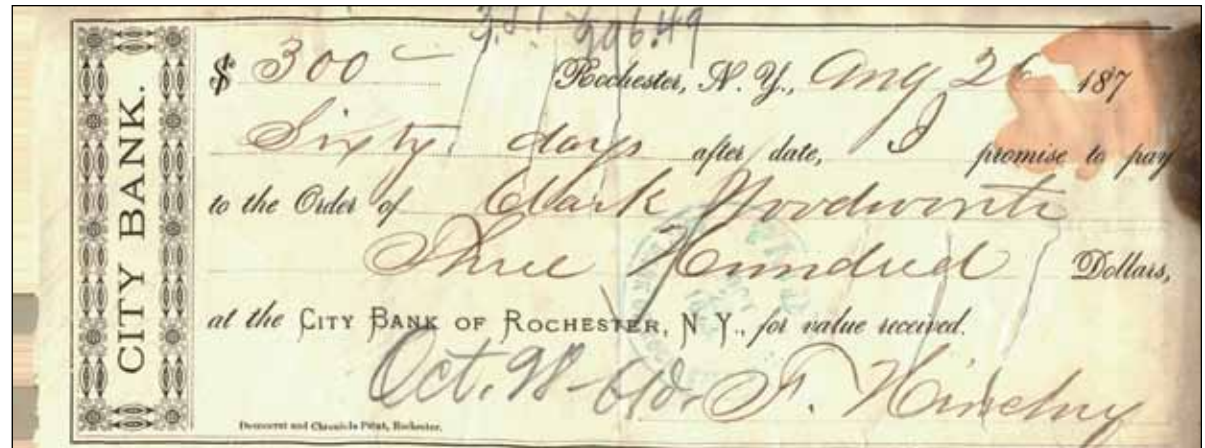 CITY BANK.
296.49
$ 300 Rochester, N. Y., Aug 26 187
Sixty days after date, I promise to pay
to the Order of Clark Woodworth
Three Hundred Dollars,
at the CITY BANK OF ROCHESTER, N. Y., for value received.
Oct. 28 F. Hinchey
Democrat and Chronicle Print, Rochester.